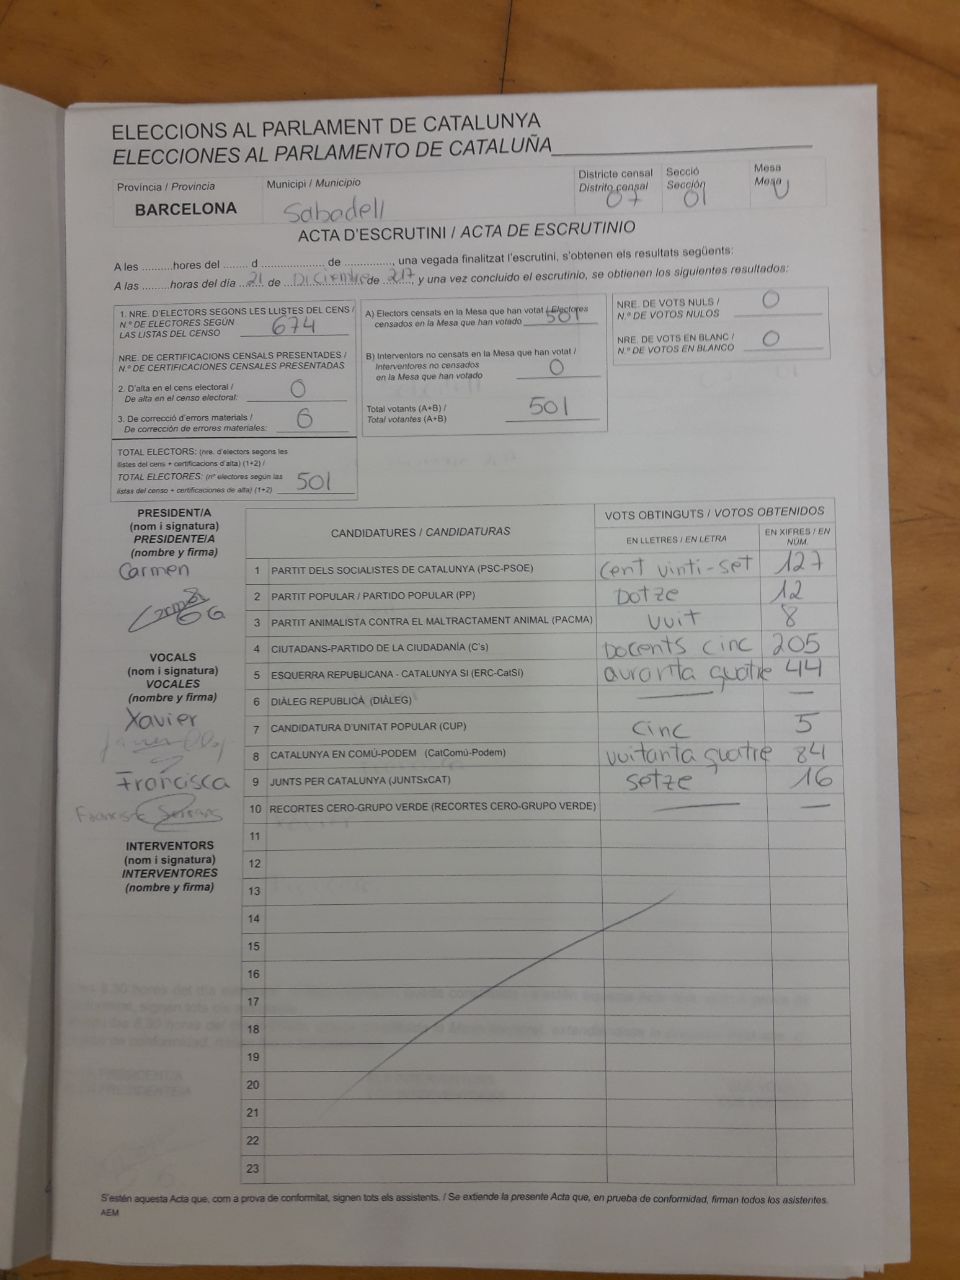 ELECCIONS AL PARLAMENT DE CATALUNYA
ELECCIONES AL PARLAMENTO DE CATALUÑA
Província / Provincia
BARCELONA
Municipi / Municipio
Sabadell
Districte censal
Distrito censal
07
Secció
Sección
01
Mesa
Mesa
U
ACTA D'ESCRUTINI / ACTA DE ESCRUTINIO
A les ..........hores del ........ d ..................... de ................, una vegada finalitzat l'escrutini, s'obtenen els resultats següents:
A las .........horas del día 21 de Diciembre de 217, y una vez concluido el escrutinio, se obtienen los siguientes resultados:
1. NRE. D'ELECTORS SEGONS LES LLISTES DEL CENS /
N.º DE ELECTORES SEGÚN
LAS LISTAS DEL CENSO 674
NRE. DE CERTIFICACIONS CENSALS PRESENTADES /
N.º DE CERTIFICACIONES CENSALES PRESENTADAS
2. D'alta en el cens electoral /
De alta en el censo electoral: 0
3. De correcció d'errors materials /
De corrección de errores materiales: 0
TOTAL ELECTORS: (nre. d'electors segons les
llistes del cens + certificacions d'alta) (1+2) /
TOTAL ELECTORES: (nº electores según las
listas del censo + certificaciones de alta) (1+2) 501
A) Electors censats en la Mesa que han votat / Electores
censados en la Mesa que han votado 501
B) Interventors no censats en la Mesa que han votat /
Interventores no censados
en la Mesa que han votado 0
Total votants (A+B) /
Total votantes (A+B) 501
NRE. DE VOTS NULS /
N.º DE VOTOS NULOS 0
NRE. DE VOTS EN BLANC /
N.º DE VOTOS EN BLANCO 0
PRESIDENT/A
(nom i signatura)
PRESIDENTE/A
(nombre y firma)
Carmen
VOCALS
(nom i signatura)
VOCALES
(nombre y firma)
Xavier
Francisca
INTERVENTORS
(nom i signatura)
INTERVENTORES
(nombre y firma)
CANDIDATURES / CANDIDATURAS
VOTS OBTINGUTS / VOTOS OBTENIDOS
EN LLETRES / EN LETRA
EN XIFRES / EN
NÚM.
1 PARTIT DELS SOCIALISTES DE CATALUNYA (PSC-PSOE) cent vinti-set 127
2 PARTIT POPULAR / PARTIDO POPULAR (PP) DOTZE 12
3 PARTIT ANIMALISTA CONTRA EL MALTRACTAMENT ANIMAL (PACMA) vuit 8
4 CIUTADANS-PARTIDO DE LA CIUDADANÍA (C's) Docents cinc 205
5 ESQUERRA REPUBLICANA - CATALUNYA SI (ERC-CatSí) quatre 44
6 DIÀLEG REPUBLICÀ (DIÀLEG) — —
7 CANDIDATURA D'UNITAT POPULAR (CUP) cinc 5
8 CATALUNYA EN COMÚ-PODEM (CatComú-Podem) vuitanta quatre 84
9 JUNTS PER CATALUNYA (JUNTSxCAT) setze 16
10 RECORTES CERO-GRUPO VERDE (RECORTES CERO-GRUPO VERDE) — —
11
12
13
14
15
16
17
18
19
20
21
22
23
S'estén aquesta Acta que, com a prova de conformitat, signen tots els assistents. / Se extiende la presente Acta que, en prueba de conformidad, firman todos los asistentes.
AEM